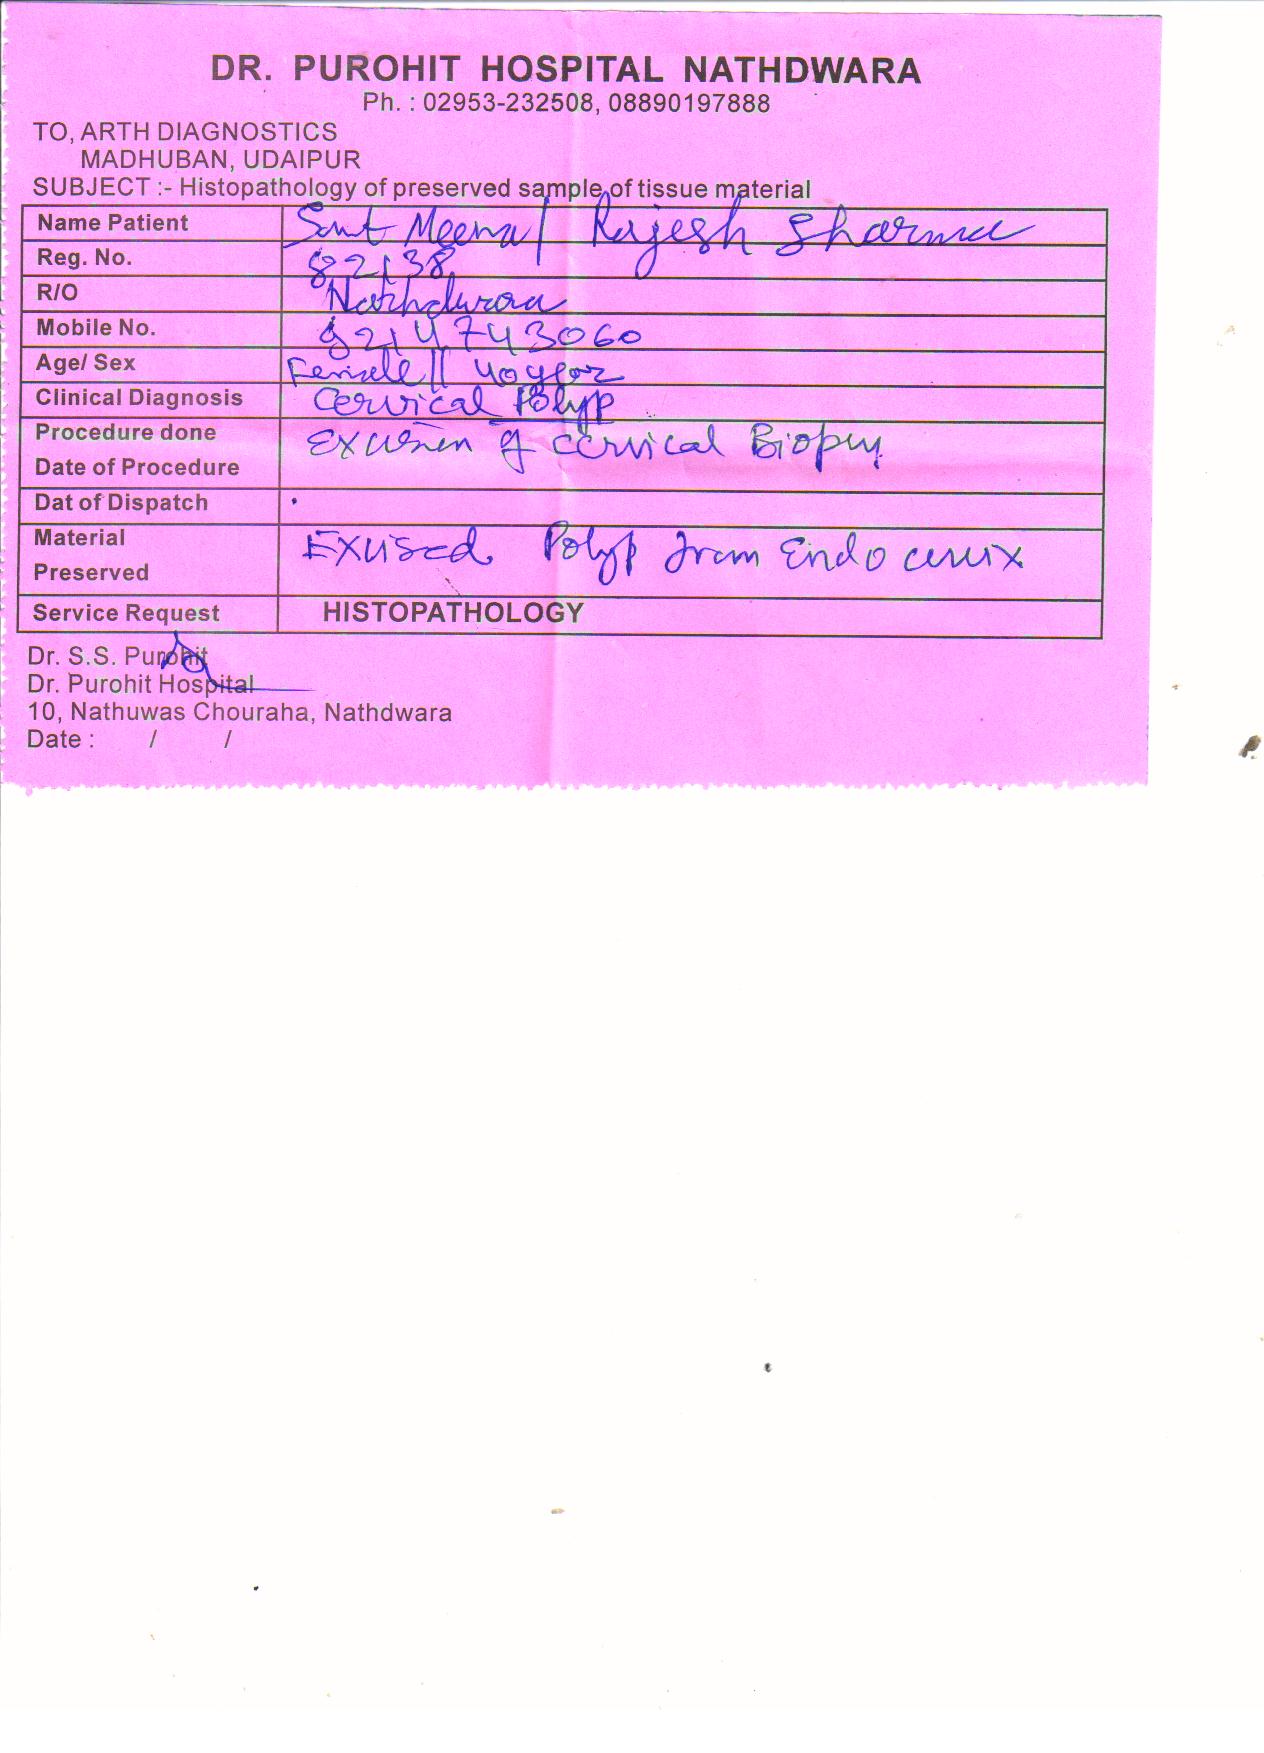 DR. PUROHIT HOSPITAL NATHDWARA
Ph. : 02953-232508, 08890197888
TO, ARTH DIAGNOSTICS
MADHUBAN, UDAIPUR
SUBJECT :- Histopathology of preserved sample of tissue material
Name Patient Smt Meena/ Rajesh Sharma
Reg. No. 82138
R/O Nathdwara
Mobile No. 8214743060
Age/ Sex Female || 40 year
Clinical Diagnosis Cervical Polyp
Procedure done Excision of cervical Biopsy
Date of Procedure
Dat of Dispatch
Material Exised Polyp from Endo cervix
Preserved
Service Request HISTOPATHOLOGY
Dr. S.S. Purohit
Dr. Purohit Hospital
10, Nathuwas Chouraha, Nathdwara
Date : / /